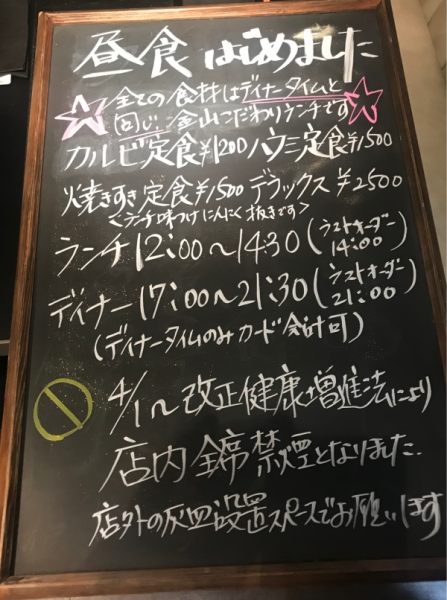 昼食はじめました
全ての食材はディナータイムと
同じ金山こだわりランチです
カルビ定食¥1200 ハラミ定食¥1500
焼きすき定食¥1500 デラックス¥2500
<ランチ味つけにんにく抜きです>
ランチ12:00〜14:30(ラストオーダー14:00)
ディナー17:00〜21:30(ラストオーダー21:00)
(ディナータイムのみカード会計可)
4/1〜改正健康増進法により
店内全席禁煙となりました.
店外の灰皿設置スペースでお願いします